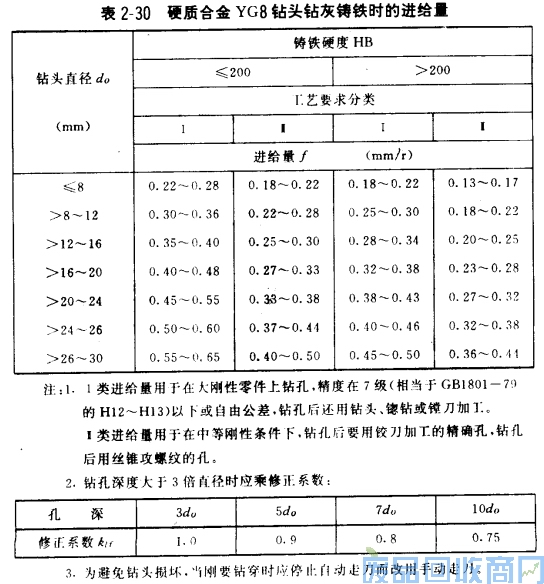 表 2-30 硬质合金 YG8 钻头钻灰铸铁时的进给量
钻头直径 d₀
(mm)
铸铁硬度 HB
≤200 >200
工艺要求分类
Ⅰ Ⅱ Ⅰ Ⅱ
进给量 f (mm/r)
≤8 0.22~0.28 0.18~0.22 0.18~0.22 0.13~0.17
>8~12 0.30~0.36 0.22~0.28 0.25~0.30 0.18~0.22
>12~16 0.35~0.40 0.25~0.30 0.28~0.34 0.20~0.25
>16~20 0.40~0.48 0.27~0.33 0.32~0.38 0.23~0.28
>20~24 0.45~0.55 0.33~0.38 0.38~0.43 0.27~0.32
>24~26 0.50~0.60 0.37~0.44 0.40~0.46 0.32~0.38
>26~30 0.55~0.65 0.40~0.50 0.45~0.50 0.36~0.44
注:1. Ⅰ类进给量用于在大刚性零件上钻孔,精度在 7 级(相当于 GB1801-79
的 H12~H13)以下或自由公差,钻孔后还用钻头、锪钻或镗刀加工。
Ⅱ类进给量用于在中等刚性条件下,钻孔后要用铰刀加工的精确孔,钻孔
后用丝锥攻螺纹的孔。
2. 钻孔深度大于 3 倍直径时应乘修正系数:
孔 深 3d₀ 5d₀ 7d₀ 10d₀
修正系数 klf 1.0 0.9 0.8 0.75
3. 为避免钻头损坏,当刚要钻穿时应停止自动走刀而改用手动走刀。
废品回收商网